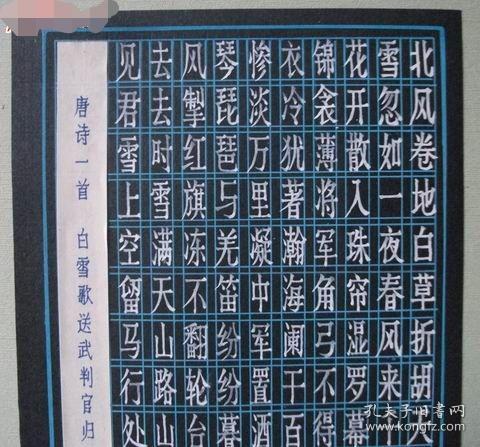 北风卷地白草折胡
雪忽如一夜春风来
花开散入珠帘湿罗幕
锦衾薄将军角弓不得
衣冷犹著瀚海阑干百
惨淡万里凝中军置酒
琴琵琶与羌笛纷纷暮
风掣红旗冻不翻轮台
去去时雪满天山路山
见君雪上空留马行处
唐诗一首 白雪歌送武判官归
孔夫子旧书网
www.kongfz.com